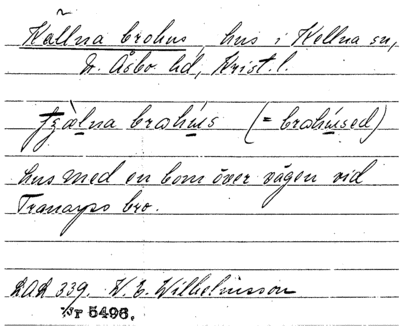 Källna brohus, hus i Kellna sn,
N. Åsbo hd, Krist. l.
brohus (= brohused)
hus med en bom över vägen vid
Tranarps bro.
DAL 339. W. E. Wilhelmsson
Nr 5496.